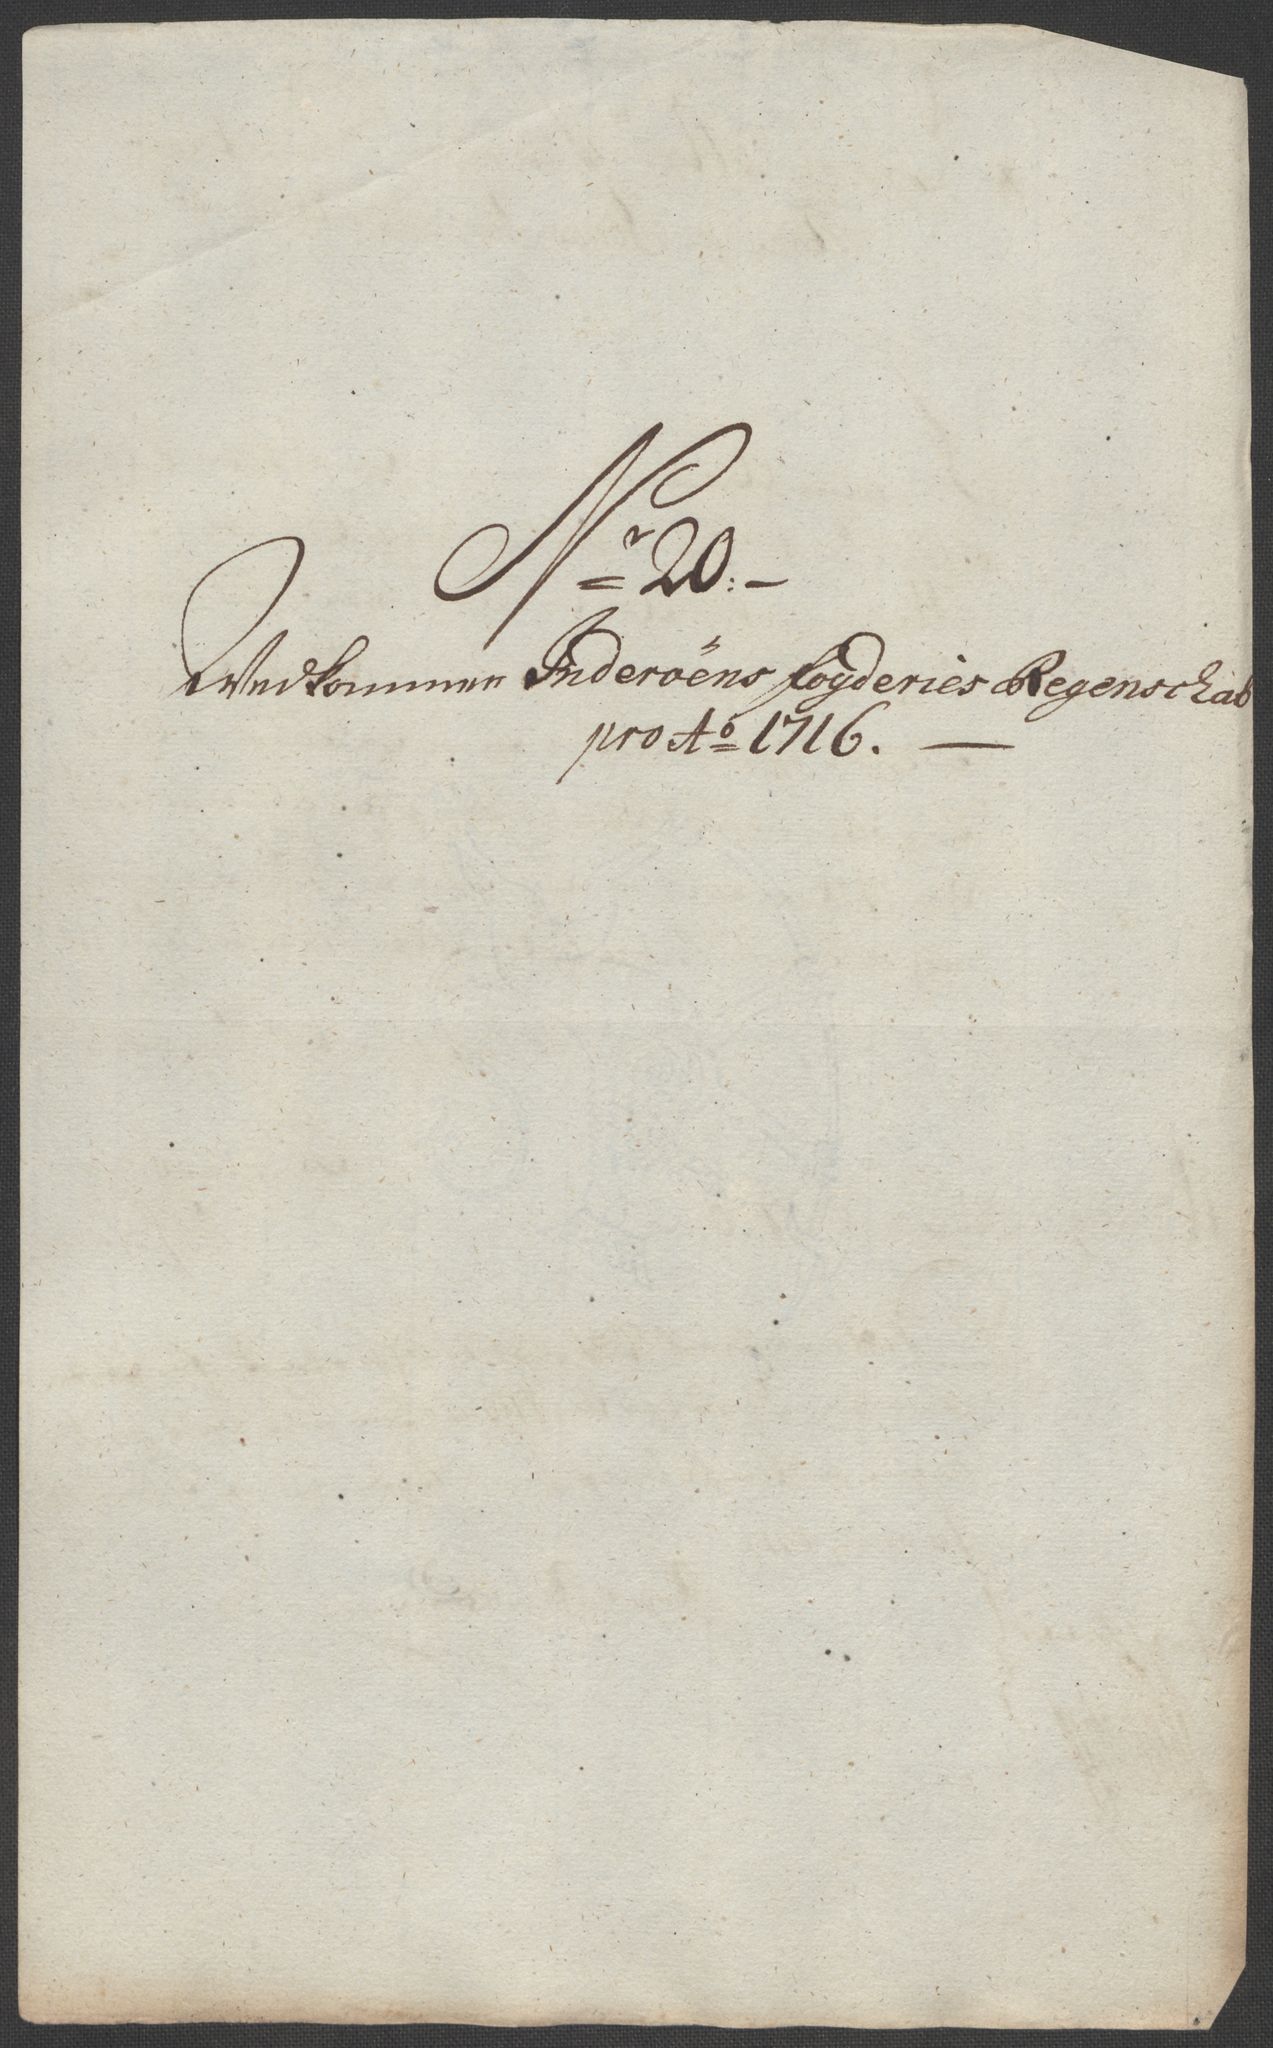 Nr 20:-
Vedkommer Inderöens fogderies Regenschab
pro Ao 1716. —